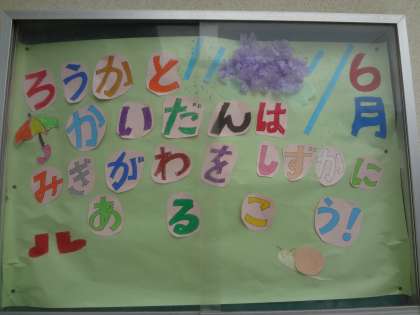 ろうかと
かいだんは
みぎがわをしずかに
あるこう!
6月